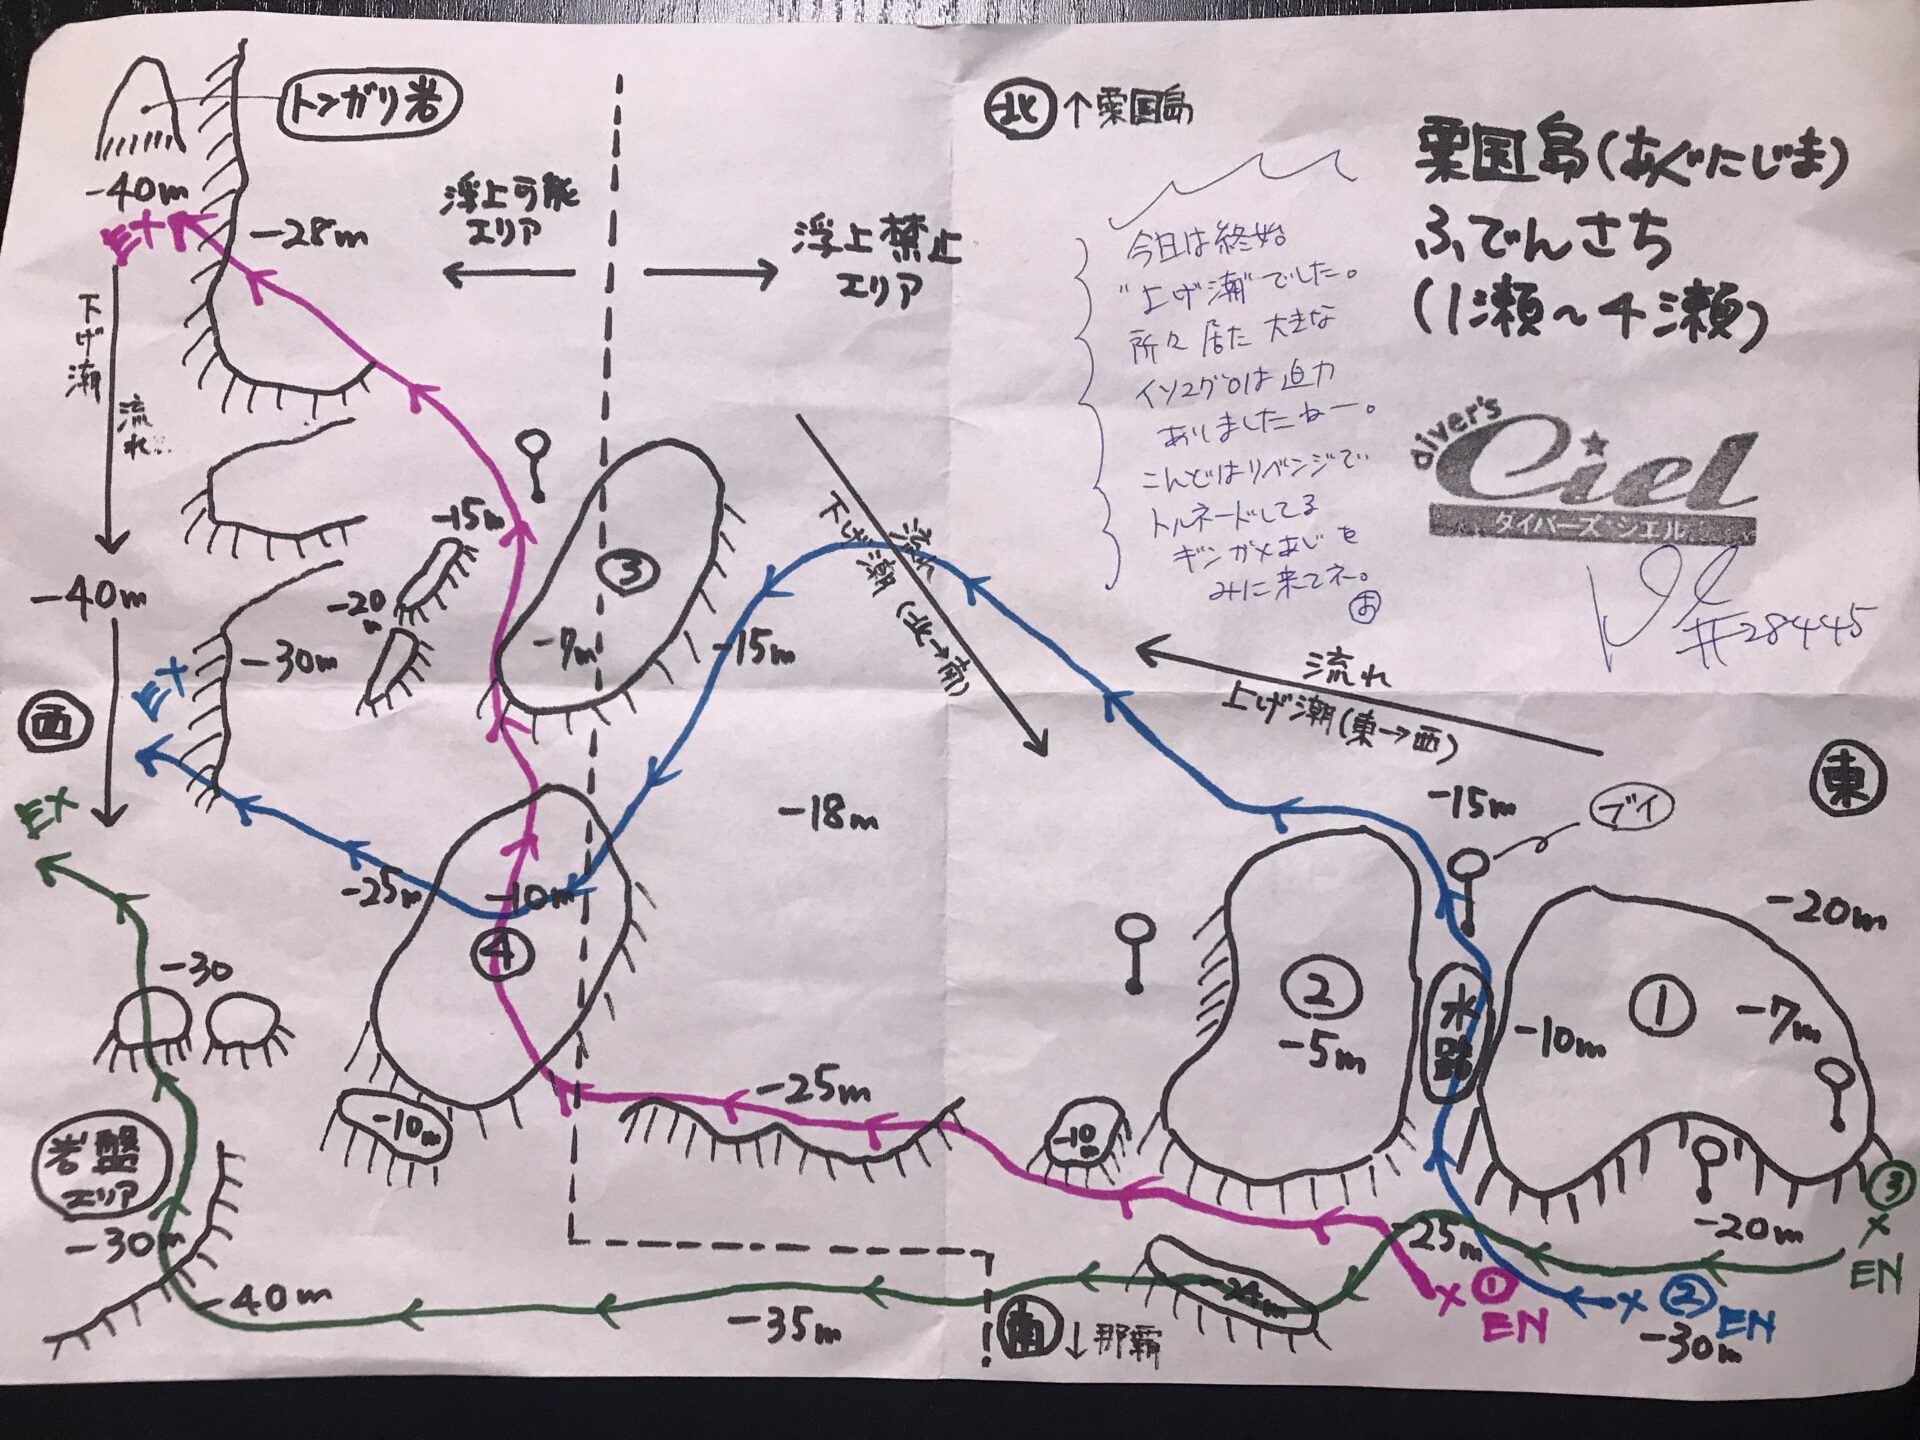 トンガリ岩
-40m
EX
-28m
下げ潮
流れ
浮上可能
エリア
浮上禁止
エリア
北 ↑粟国島
粟国島(あぐにじま)
ふでんさち
(1瀬~4瀬)
今日は終始
"上げ潮"でした。
所々居た 大きな
イソマグロは迫力
ありましたねー。
こんどはリベンジで
トルネードしてる
ギンガメあじを
みに来てネ。
お
diver's
Ciel
ダイバーズ・シエル
#28445
-15m
③
-7m
-20m
-40m
-30m
EX
西
EX
流れ
下げ潮(北→南)
-15m
流れ
上げ潮(東→西)
東
-15m
ブイ
-18m
-20m
-25m
-10m
④
②
-5m
水路
①
-10m
-7m
-30
-10m
-25m
-10m
岩盤
エリア
-30m
-40m
-35m
-24m
-25m
-20m
③
×
EN
× ①
EN
× ②
EN
-30m
南 ↓那覇